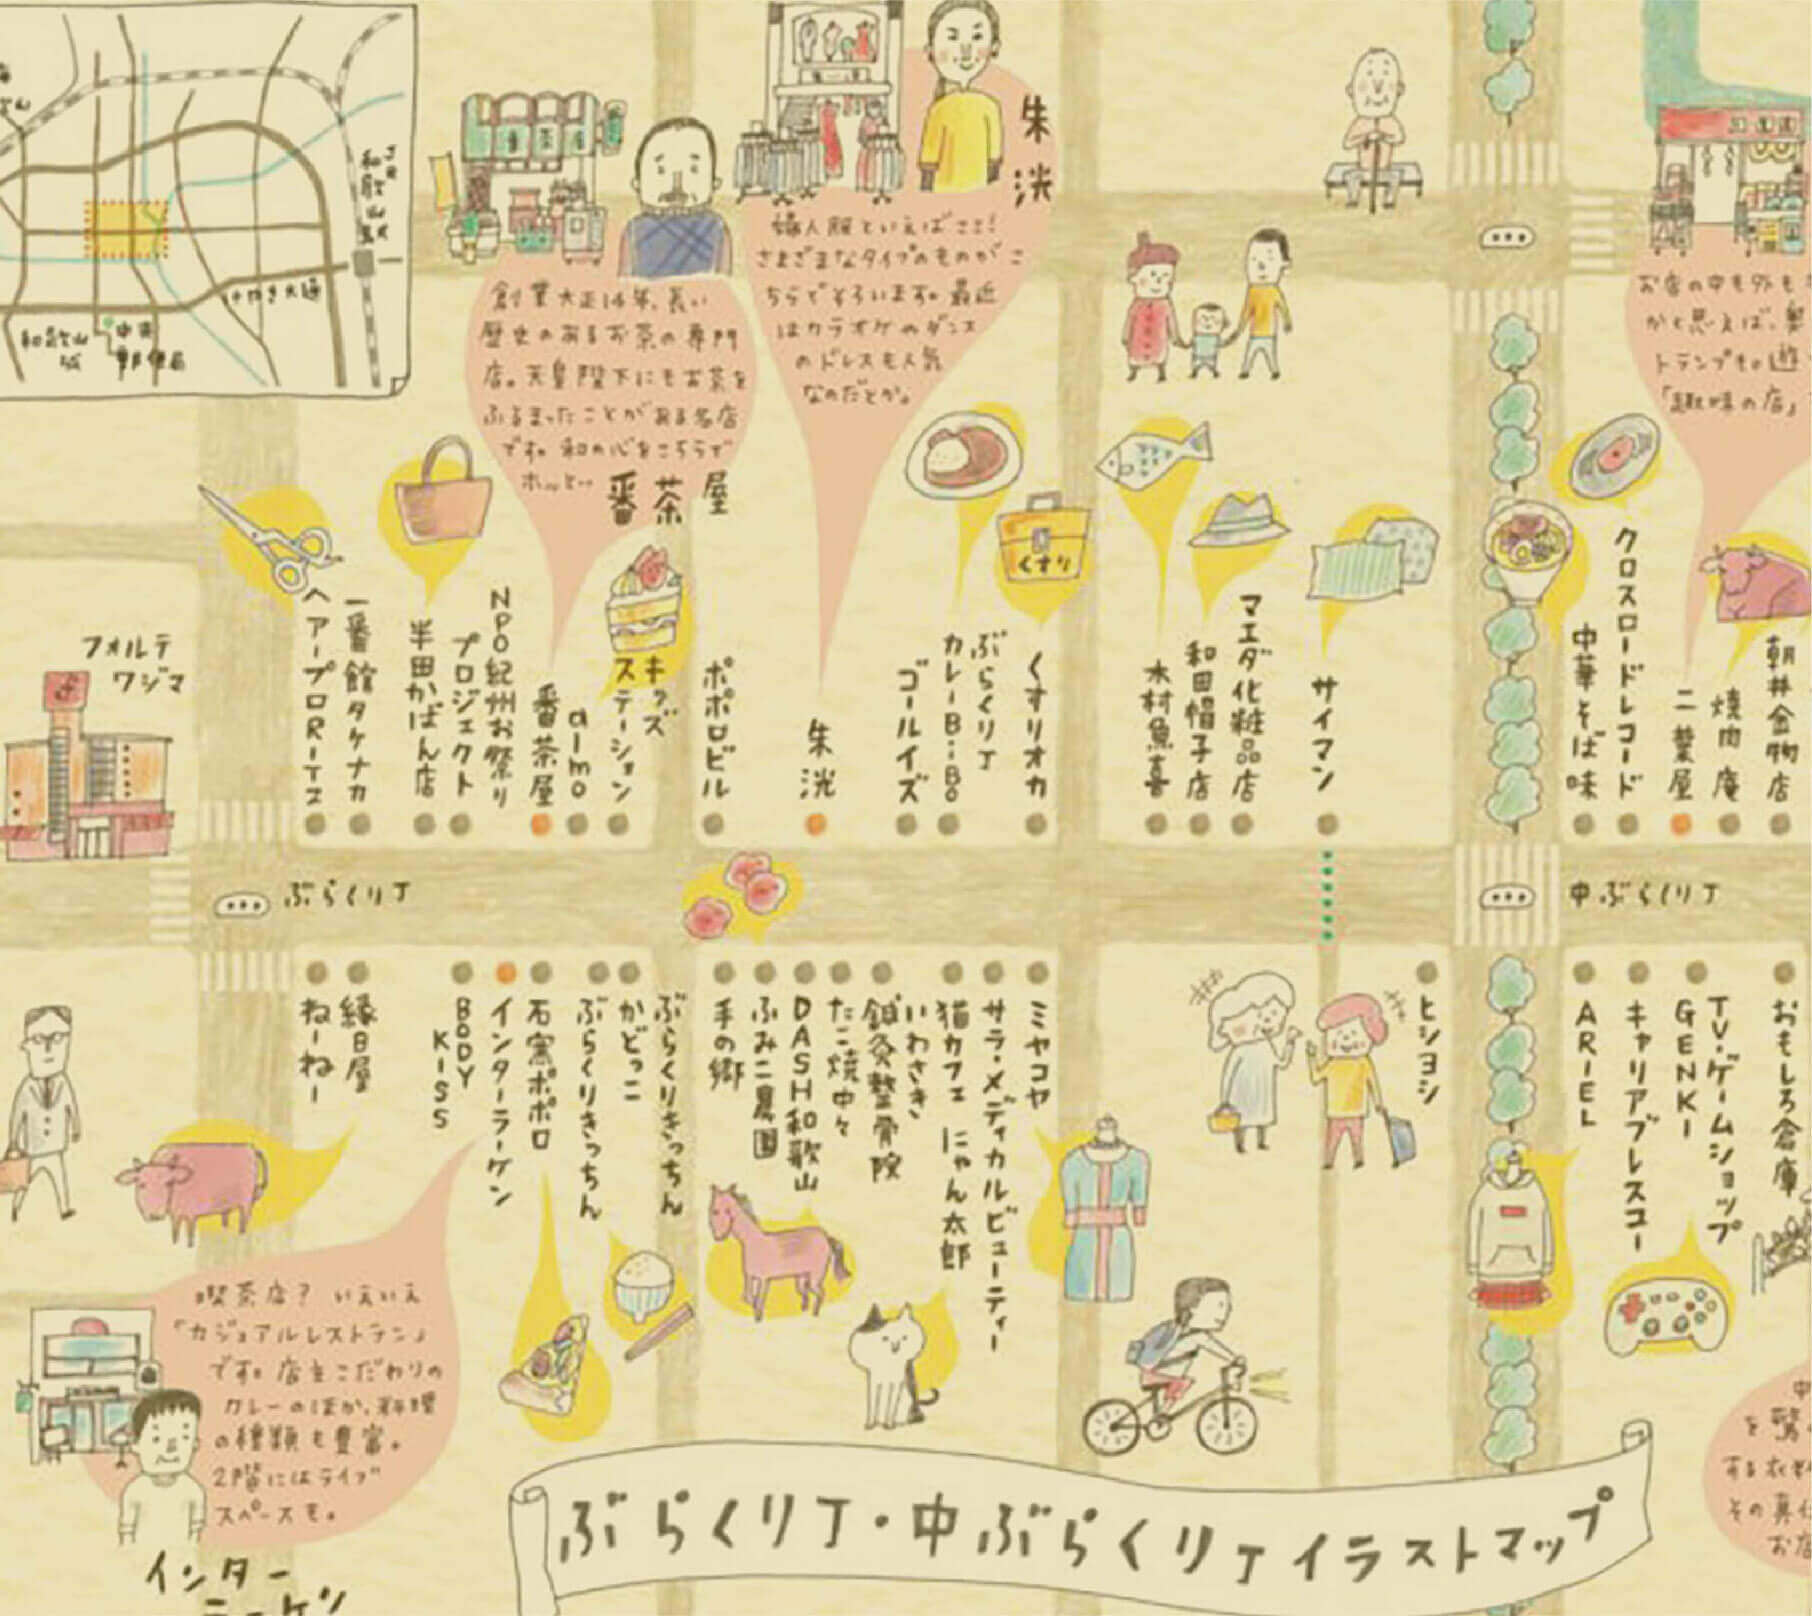 JR和歌山駅
けやき大通
和歌山城
中央郵便局
番茶屋
創業大正14年、長い
歴史のあるお茶の専門
店。天皇陛下にもお茶を
ふるまったことがある名店
です。和の心をこちらで
ホッと…
番茶屋
朱洸
婦人服といえばここ!
さまざまなタイプのものがこ
ちらでそろいます。最近
はカラオケやダンス
のドレスも人気
なのだとか。
お店の中も外も
かと思えば、奥
トランプも。遊
「趣味の店」
フォルテ
ワジマ
ヘアープロRITZ
一番館タケナカ
半田かばん店
NPO紀州お祭り
プロジェクト
番茶屋
almo
キッズ
ステーション
ポポロビル
朱洸
ゴールイズ
ぶらくり丁
カレーBiBo
くすりオカ
くすり
木村魚喜
和田帽子店
マエダ化粧品店
サイマン
中華そば味
クロスロードレコード
二葉屋
焼肉庵
朝井金物店
ぶらくり丁
中ぶらくり丁
ねーねー
縁日屋
BODY
KISS
インターラーケン
石窯ポポロ
ぶらくりきっちん
かどっこ
ぶらくりきっちん
手の郷
ふみこ農園
DASH和歌山
たこ焼中々
鍼灸整骨院
いわさき
猫カフェ にゃん太郎
サラ・メディカルビューティー
ミヤコヤ
ヒシヨシ
ARIEL
キャリアブレスユー
TV・ゲームショップ
GENKI
おもしろ倉庫
喫茶店? いえいえ
「カジュアルレストラン」
です。店主こだわりの
カレーのほか、料理
の種類も豊富。
2階にはライブ
スペースも。
インター
ラーケン
中
を驚
する衣
その真
お店
ぶらくり丁・中ぶらくり丁イラストマップ